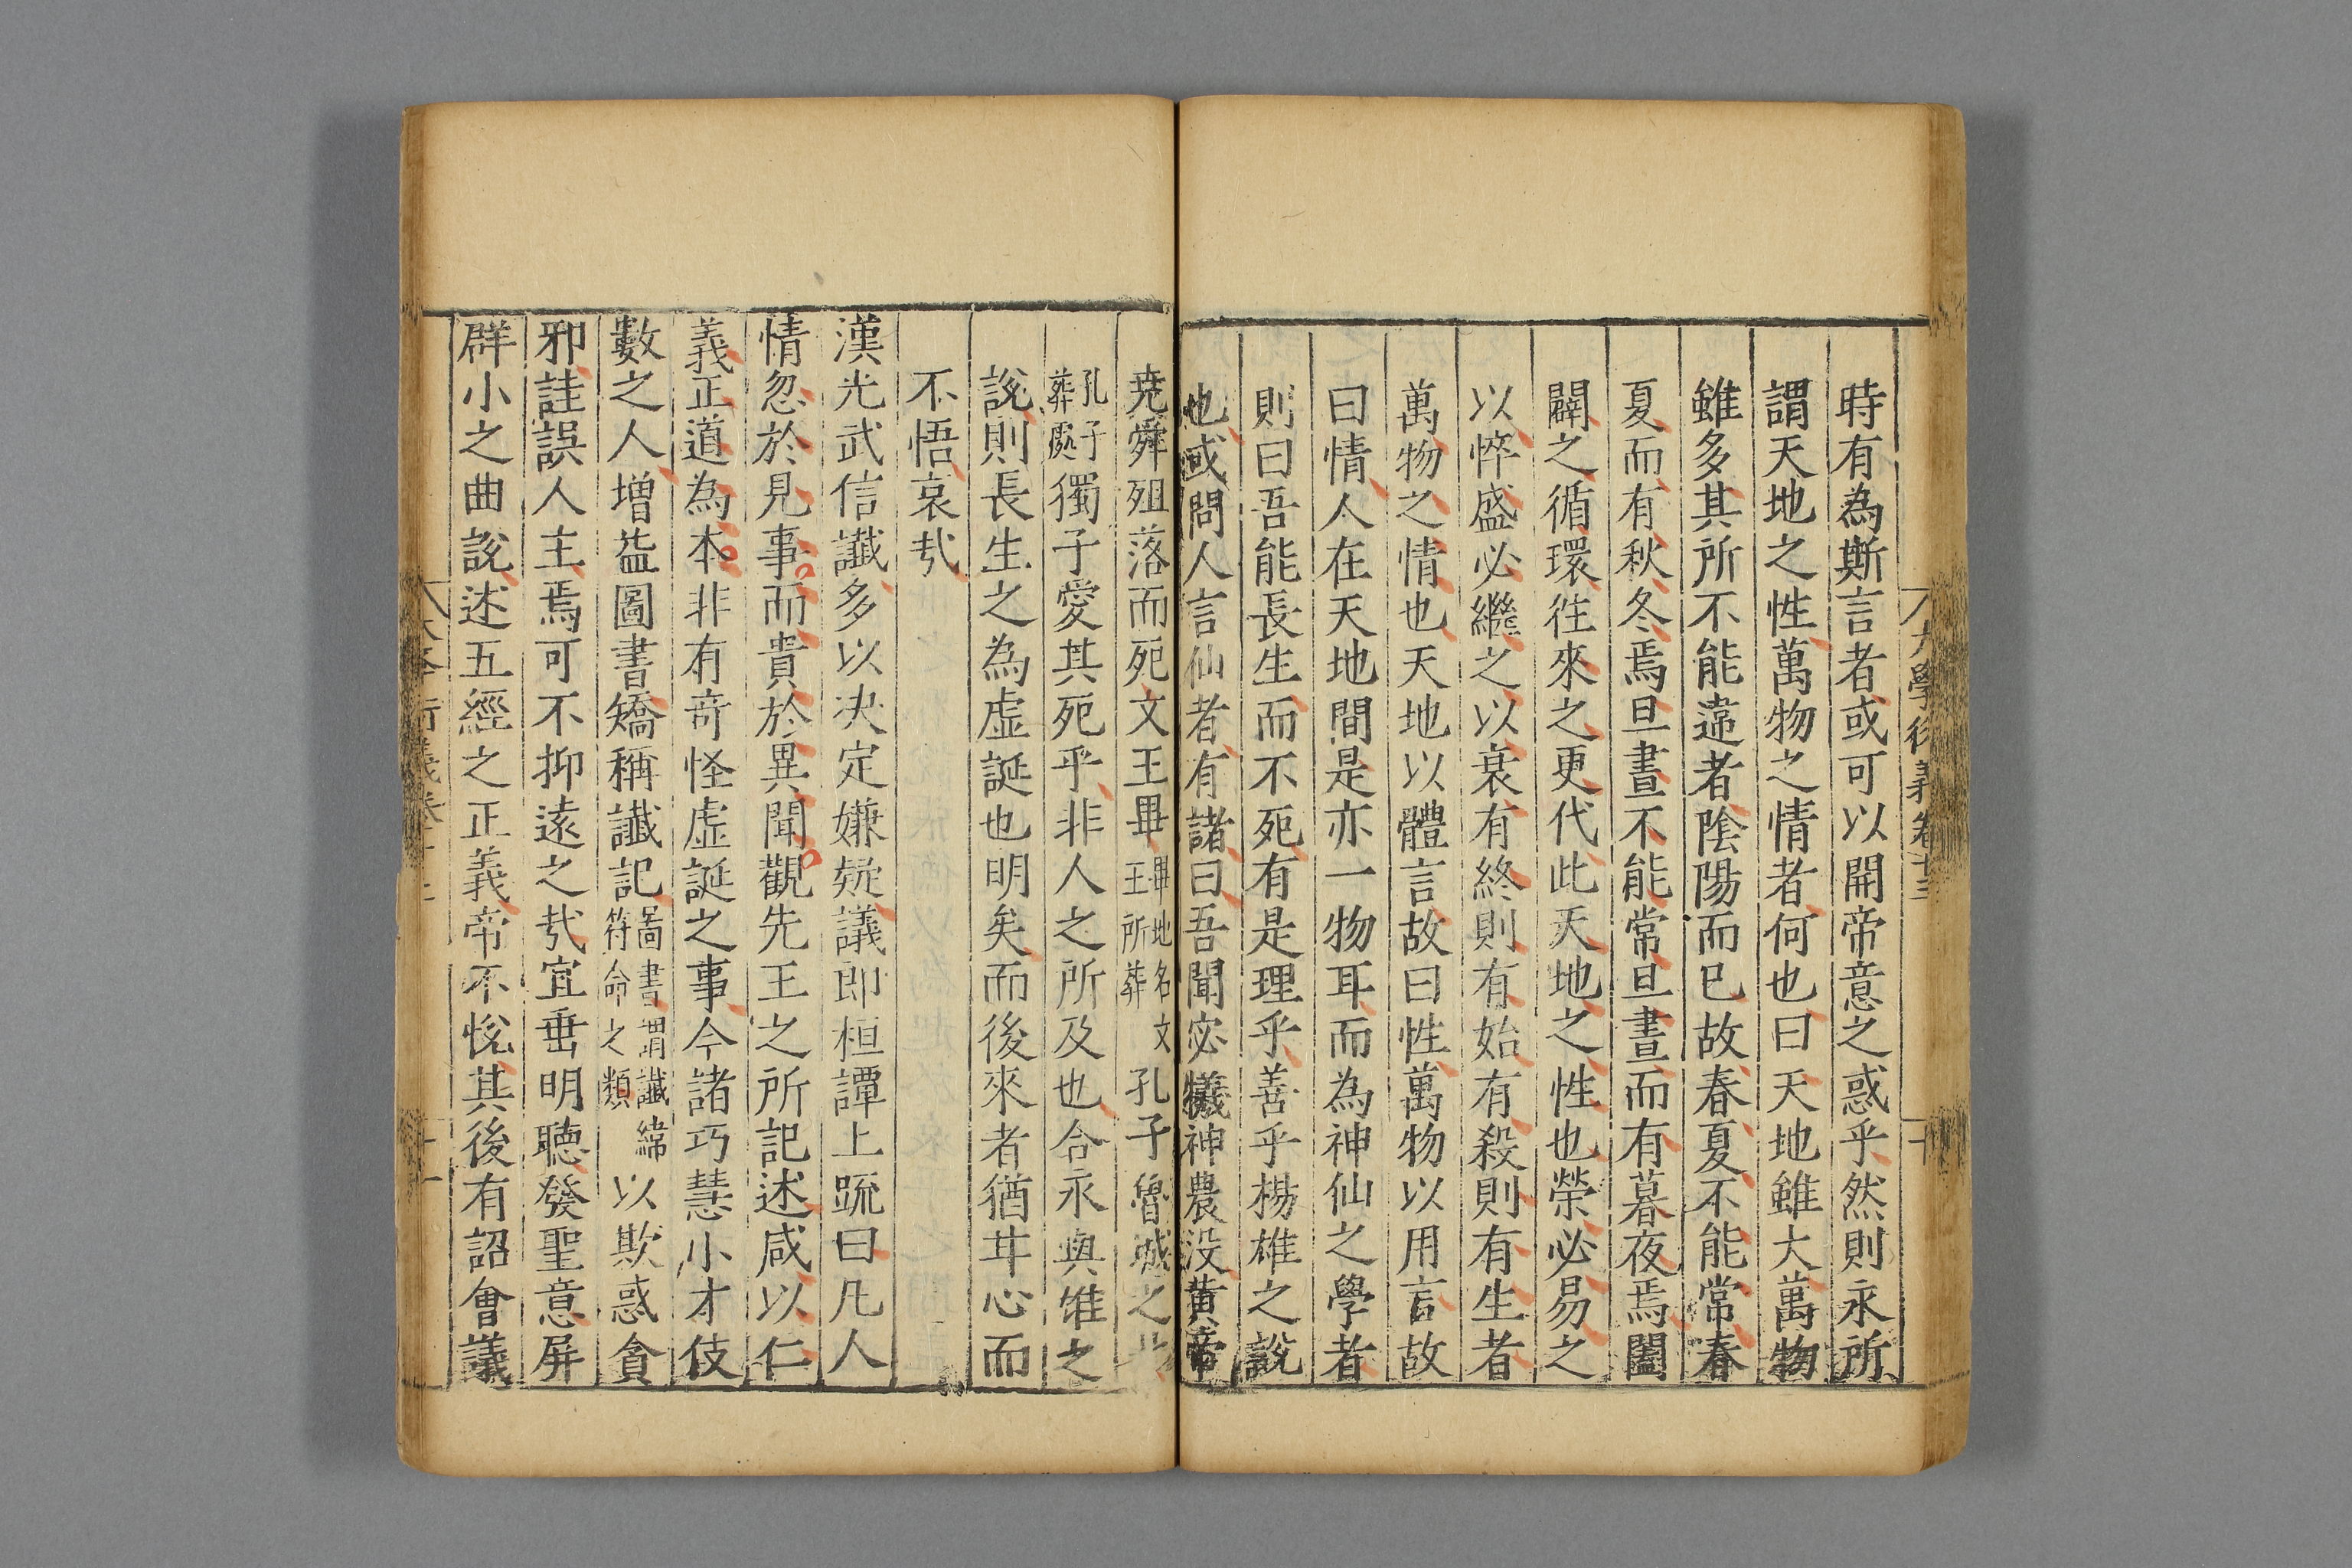 大學衍義卷十三
十
時有為斯言者或可以開帝意之惑乎然則永所
謂天地之性萬物之情者何也曰天地雖大萬物
雖多其所不能違者陰陽而已故春夏不能常春
夏而有秋冬焉旦晝不能常旦晝而有暮夜焉闔
闢之循環徃來之更代此天地之性也榮必易之
以悴盛必繼之以衰有終則有始有殺則有生者
萬物之情也天地以體言故曰性萬物以用言故
曰情人在天地間是亦一物耳而為神仙之學者
則曰吾能長生而不死有是理乎善乎楊雄之說
也或問人言仙者有諸曰吾聞宓犧神農没黄帝
尭舜殂落而死文王畢畢地名文王所葬孔子魯城之北
孔子葬處獨子愛其死乎非人之所及也合永與雄之
說則長生之為虛誕也明矣而後來者猶甘心而
不悟哀㢤
漢光武信讖多以决定嫌疑議郎桓譚上䟽曰凡人
情忽於見事而貴於異聞觀先王之所記述咸以仁
義正道為本非有竒怪虛誕之事今諸巧慧小才伎
數之人增益圖書矯稱讖記圖書謂讖緯符命之類以欺惑貪
邪詿誤人主焉可不抑遠之㢤宜垂明聴發聖意屏
群小之曲說述五經之正義帝不悅其後有詔會議
大學衍義卷十三
十一